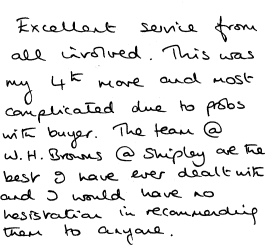 Excellent service from
all involved. This was
my 4th move and most
complicated due to probs
with buyer. The team @
W.H. Browns @ Shipley are the
best I have ever dealt with
and I would have no
hesistration in recommending
them to anyone.